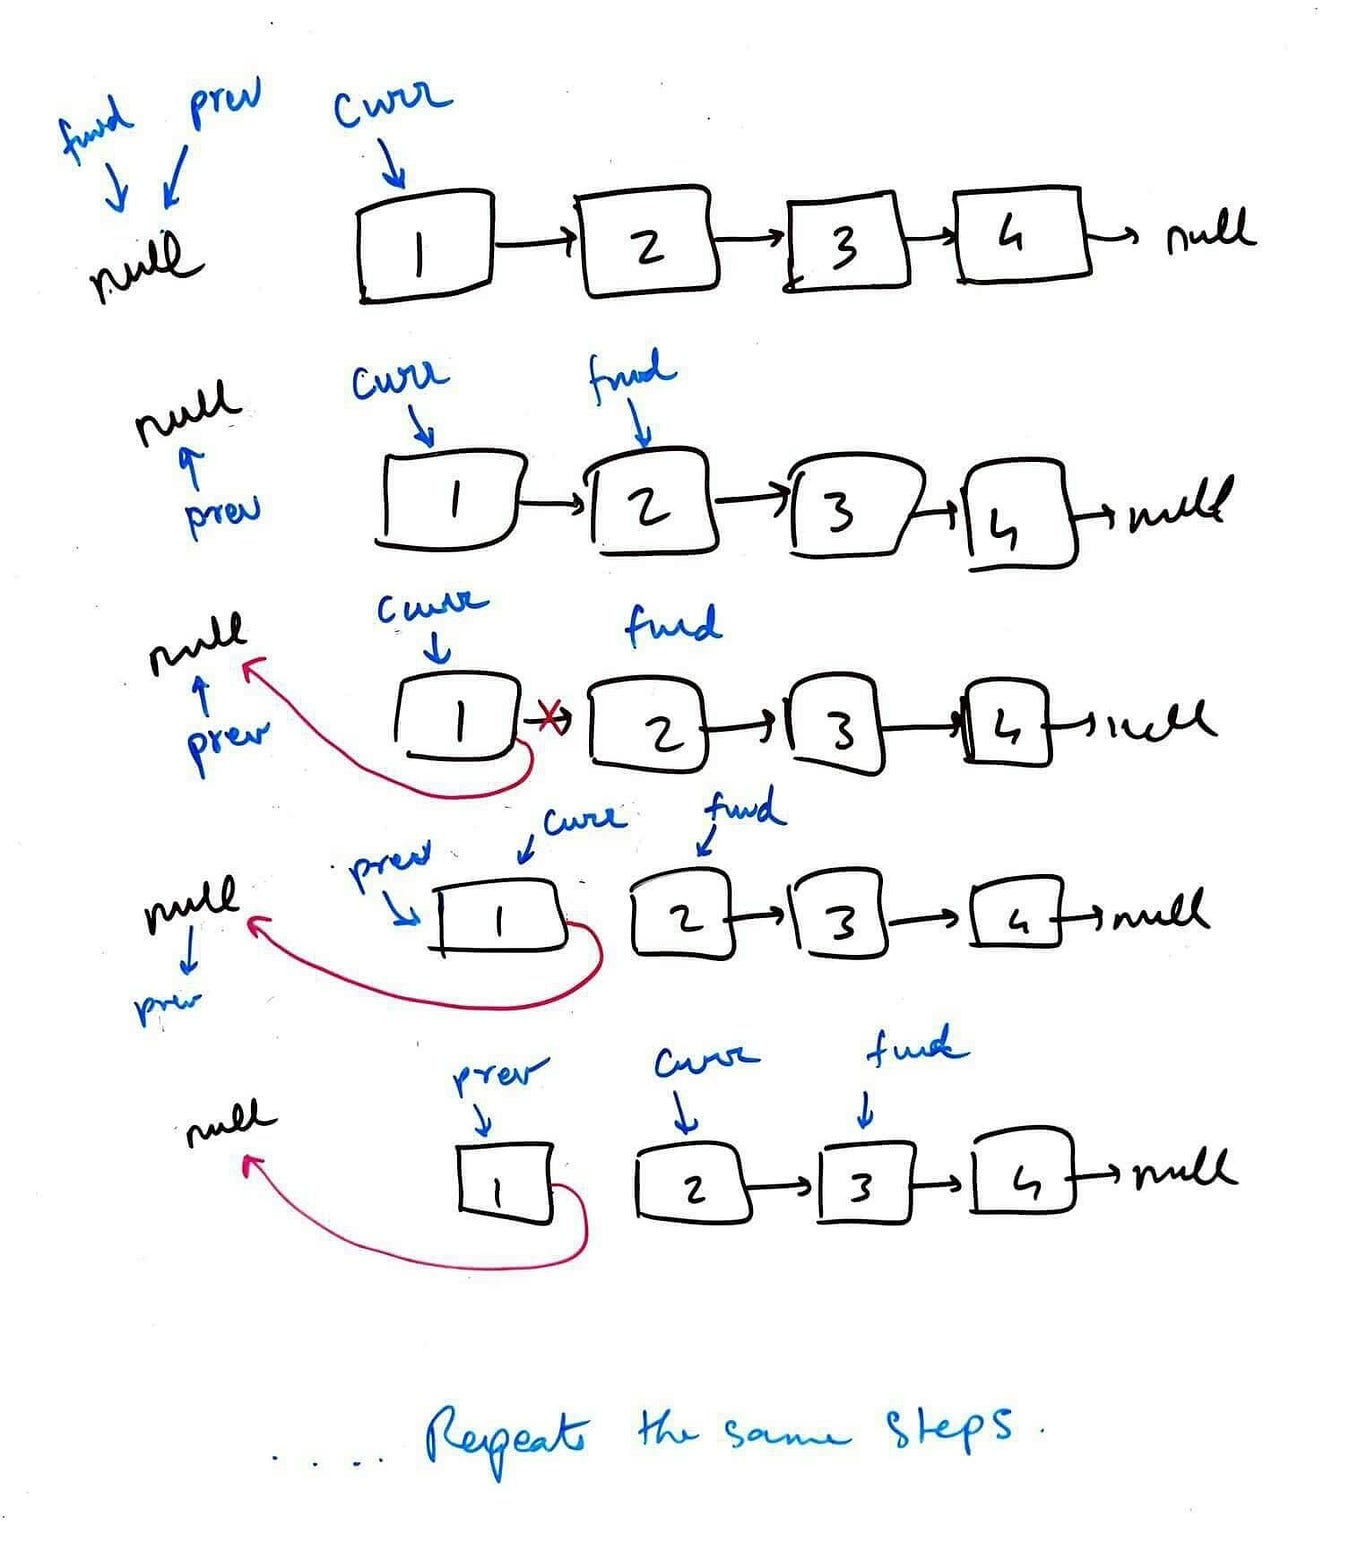 fwd prev curr
null 1 2 3 4 null
curr fwd
null
1 2 3 4 null
prev
curr fwd
null
1 2 3 4 null
prev
curr fwd
prev
null 1 2 3 4 null
prev
prev curr fwd
null
1 2 3 4 null
.... Repeat the same steps.